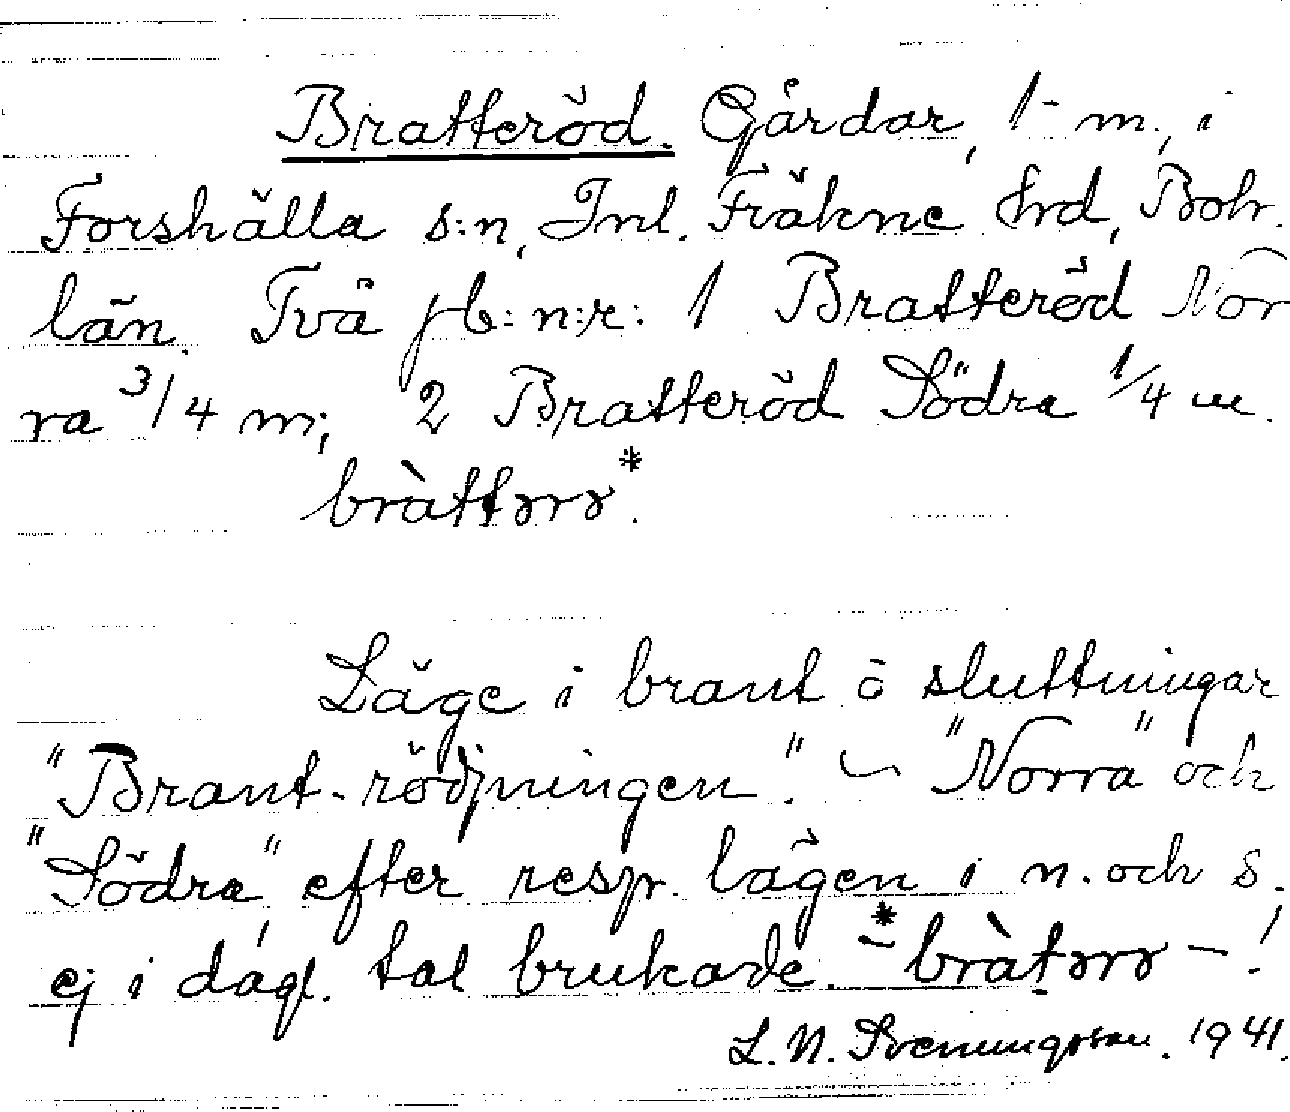 Bratteröd. Gårdar, 1 m., i
Forshälla s:n, Inl. Fräkne hrd, Boh.
län. Två jb:n:r: 1 Bratteröd Nor
ra 3/4 m; 2 Bratteröd Södra 1/4 m.
Läge i brant ö sluttningar
"Brant-rödjningen". — "Norra" och
"Södra" efter resp. lägen i n. och s.,
ej i dagl. tal brukade.
L. N. Svenungsson. 1941.